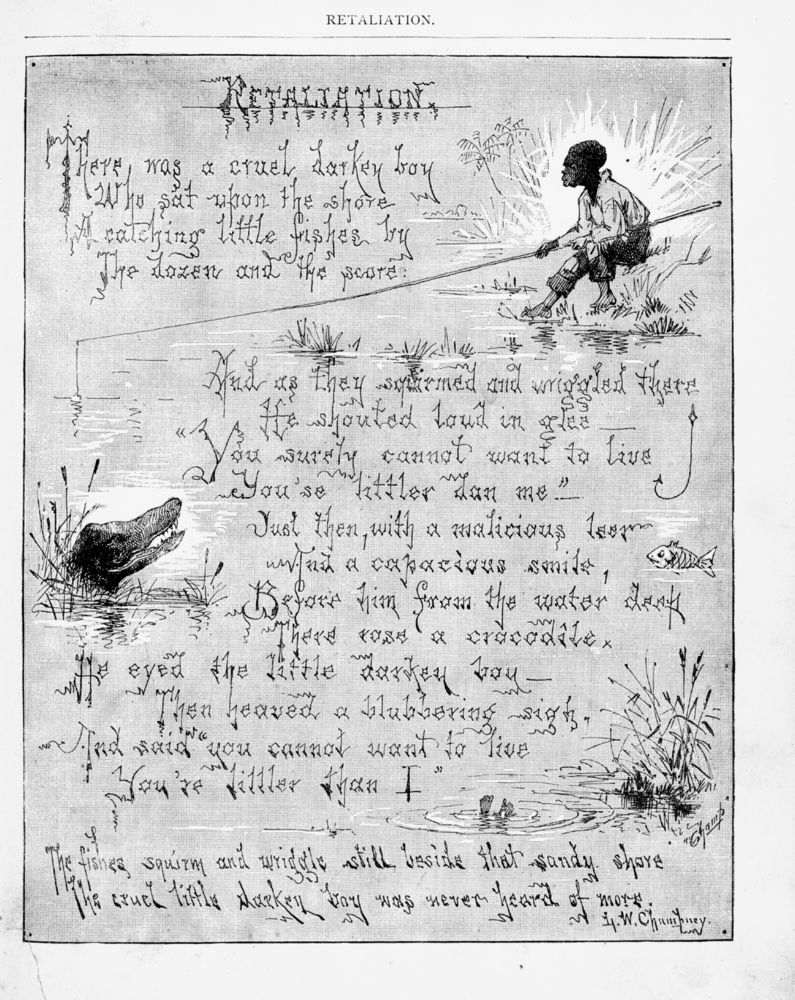 RETALIATION.
RETALIATION.
There was a cruel darkey boy
Who sat upon the shore
A catching little fishes by
The dozen and the score:
And as they squirmed and wriggled there
He shouted loud in glee —
"You surely cannot want to live
You'se littler dan me." —
Just then, with a malicious leer
And a capacious smile,
Before him from the water deep
There rose a crocodile.
He eyed the little darkey boy —
Then heaved a blubbering sigh,
And said "you cannot want to live
You're littler than I"
"Champ"
The fishes squirm and wriggle still beside that sandy shore
The cruel little darkey boy was never heard of more.
L. W. Champney.